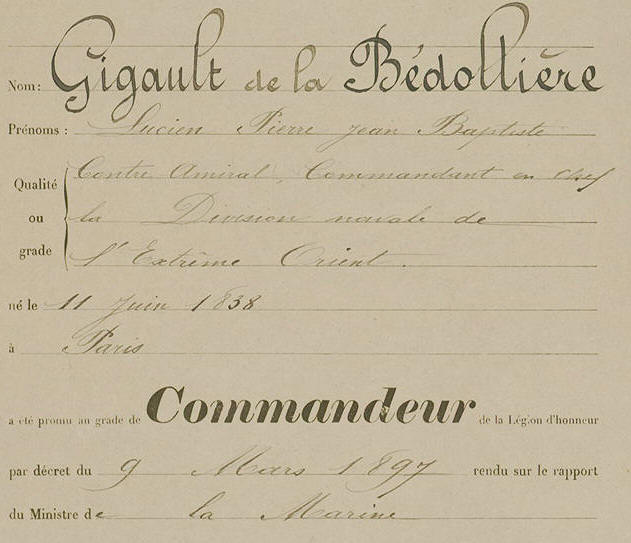 Nom: Gigault de la Bédollière
Prénoms : Lucien Pierre Jean Baptiste
Qualité ou grade Contre Amiral, Commandant en chef
la Division navale de
l'Extrême Orient.
né le 11 Juin 1838
à Paris
a été promu au grade de Commandeur de la Légion d'honneur
par décret du 9 Mars 1897 rendu sur le rapport
du Ministre de la Marine